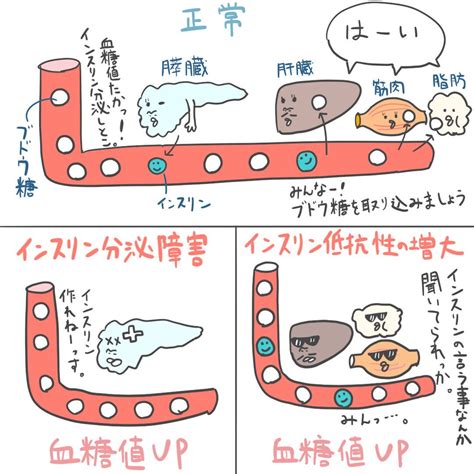 正常
はーい
血糖値たかっ!
インスリン分泌しとこ。
膵臓
肝臓
筋肉
脂肪
ブドウ糖
インスリン
みんなー!
ブドウ糖を取り込みましょう
インスリン分泌障害
インスリン
作れねーっす。
血糖値UP
インスリン低抗性の増大
インスリンの言う事なんか
聞いてられっか。
みんっ…。
血糖値UP